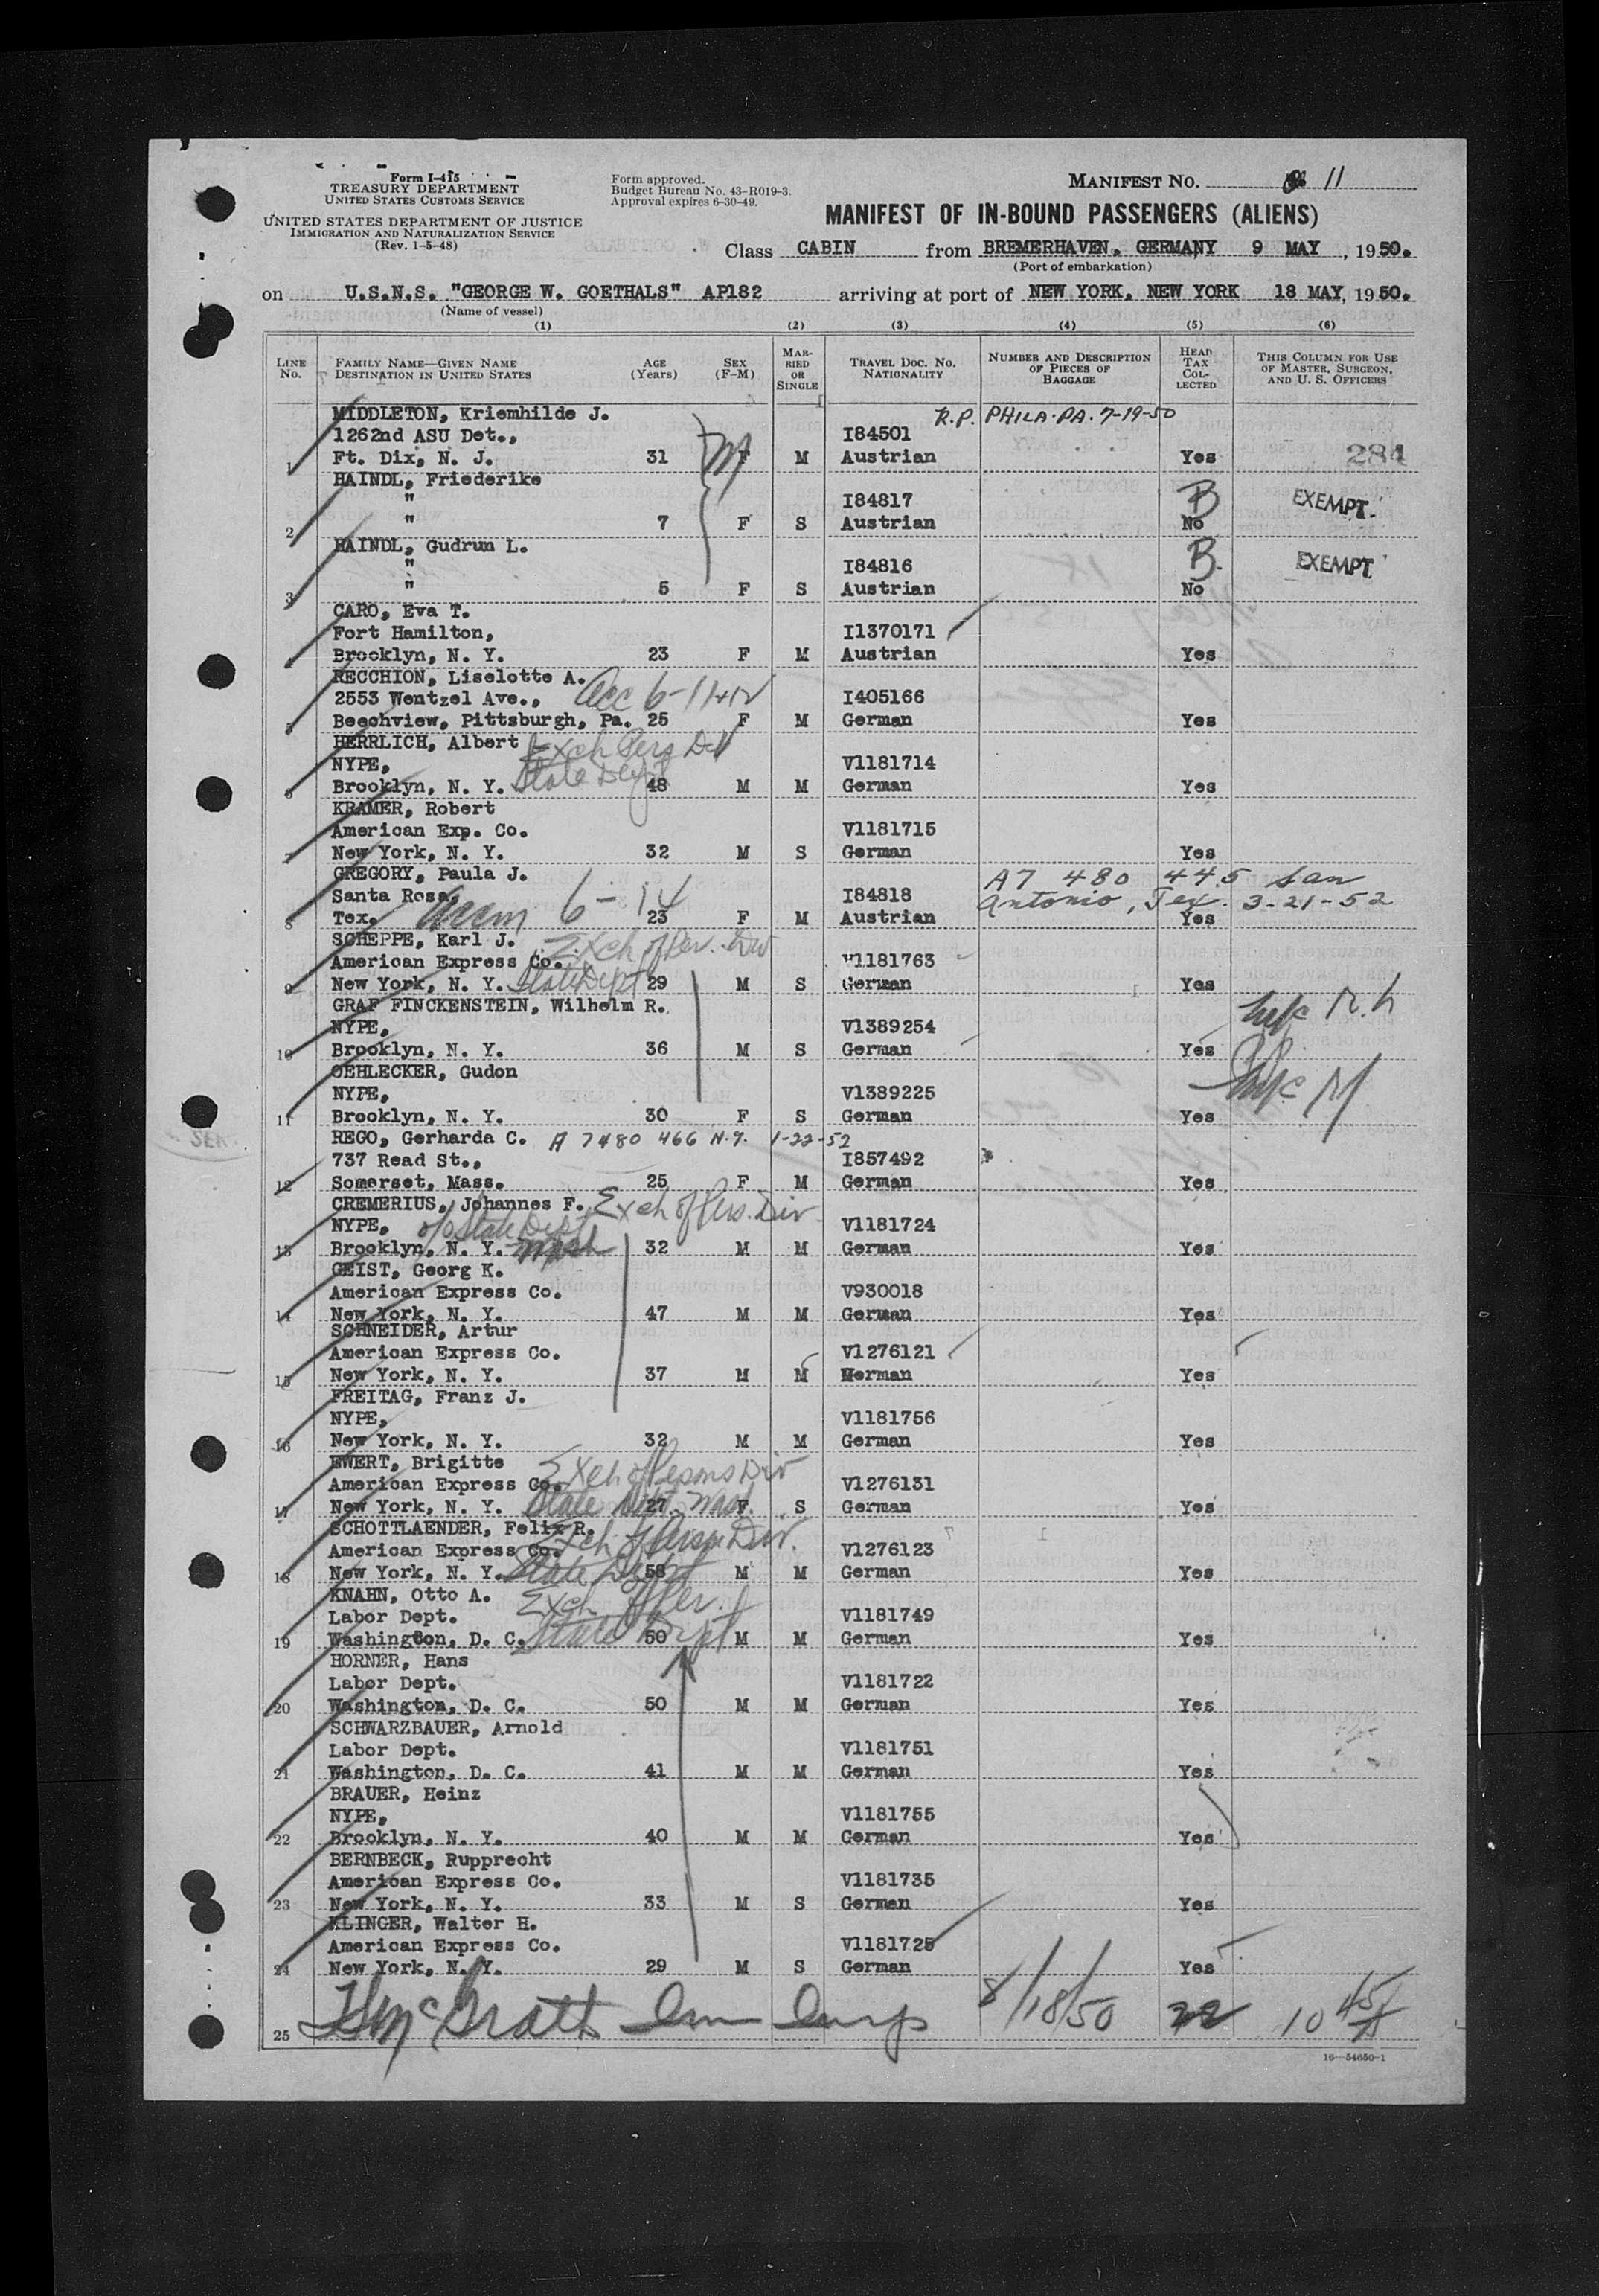 Form I-415
TREASURY DEPARTMENT
UNITED STATES CUSTOMS SERVICE
UNITED STATES DEPARTMENT OF JUSTICE
IMMIGRATION AND NATURALIZATION SERVICE
(Rev. 1-5-48)
Form approved.
Budget Bureau No. 43-R019-3.
Approval expires 6-30-49.
MANIFEST NO. 11
MANIFEST OF IN-BOUND PASSENGERS (ALIENS)
Class CABIN from BREMERHAVEN, GERMANY 9 MAY, 1950.
(Port of embarkation)
on U.S.N.S. "GEORGE W. GOETHALS" AP182 arriving at port of NEW YORK, NEW YORK 18 MAY, 1950.
(Name of vessel)
(1) (2) (3) (4) (5) (6)
LINE NO.
FAMILY NAME—GIVEN NAME
DESTINATION IN UNITED STATES
AGE (Years)
SEX (F-M)
MARRIED OR SINGLE
TRAVEL DOC. NO.
NATIONALITY
NUMBER AND DESCRIPTION OF PIECES OF BAGGAGE
HEAD TAX COLLECTED
THIS COLUMN FOR USE OF MASTER, SURGEON, AND U. S. OFFICERS
MIDDLETON, Kriemhilde J. R.P. PHILA. PA. 7-19-50
1262nd ASU Det., I84501
1 Ft. Dix, N. J. 31 F M Austrian Yes 284
HAINDL, Friederike
" I84817 B EXEMPT.
2 " 7 F S Austrian No
HAINDL, Gudrun L.
" I84816 B EXEMPT
3 " 5 F S Austrian No
CARO, Eva T.
Fort Hamilton, I1370171
4 Brooklyn, N. Y. 23 F M Austrian Yes
RECCHION, Liselotte A.
2553 Wentzel Ave., I405166
5 Beechview, Pittsburgh, Pa. 25 F M German Yes
HERRLICH, Albert Exch Pers Div
NYPE, State Dept V1181714
6 Brooklyn, N. Y. 48 M M German Yes
KRAMER, Robert
American Exp. Co. V1181715
7 New York, N. Y. 32 M S German Yes
GREGORY, Paula J. A7 480 445 San
Santa Rosa, 6-14 I84818 Antonio, Tex. 3-21-52
8 Tex. 23 F M Austrian Yes
SCHEPPE, Karl J. Exch of Per. Div
American Express Co. V1181763
9 New York, N. Y. State Dept 29 M S German Yes
GRAF FINCKENSTEIN, Wilhelm R.
NYPE, V1389254
10 Brooklyn, N. Y. 36 M S German Yes
OEHLECKER, Gudon
NYPE, V1389225
11 Brooklyn, N. Y. 30 F S German Yes
REGO, Gerharda C. A 7480 466 N.Y. 1-22-52
737 Read St., I857492
12 Somerset, Mass. 25 F M German Yes
CREMERIUS, Johannes F. Exch of Pers. Div
NYPE, c/o State Dept V1181724
13 Brooklyn, N. Y. Wash 32 M M German Yes
GEIST, Georg K.
American Express Co. V930018
14 New York, N. Y. 47 M M German Yes
SCHNEIDER, Artur
American Express Co. V1276121
15 New York, N. Y. 37 M M German Yes
FREITAG, Franz J.
NYPE, V1181756
16 New York, N. Y. 32 M M German Yes
EWERT, Brigitte Exch of Persons Div
American Express Co. V1276131
17 New York, N. Y. State Dept. Wash. 27 F S German Yes
SCHOTTLAENDER, Felix R.
American Express Co. Exch of Persn. Div. V1276123
18 New York, N. Y. State Dept 58 M M German Yes
KNAHN, Otto A.
Labor Dept. Exch of Per. V1181749
19 Washington, D. C. State Dept 50 M M German Yes
HORNER, Hans
Labor Dept. V1181722
20 Washington, D. C. 50 M M German Yes
SCHWARZBAUER, Arnold
Labor Dept. V1181751
21 Washington, D. C. 41 M M German Yes
BRAUER, Heinz
NYPE, V1181755
22 Brooklyn, N. Y. 40 M M German Yes
BERNBECK, Rupprecht
American Express Co. V1181735
23 New York, N. Y. 33 M S German Yes
KLINGER, Walter H.
American Express Co. V1181725
24 New York, N. Y. 29 M S German Yes
25 McGrath Imm Insp 8/18/50 22 10 45/A
16—54650-1